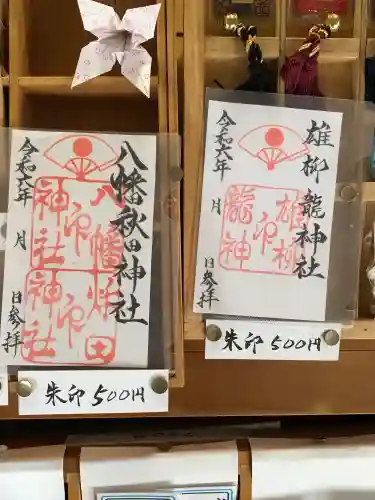 八幡秋田神社
令和六年　月　日参拝
八幡
神社
印
秋田
神社
印
朱印 500円
雄柳龍神社
令和六年　月　日参拝
雄柳
龍神
印
朱印 500円